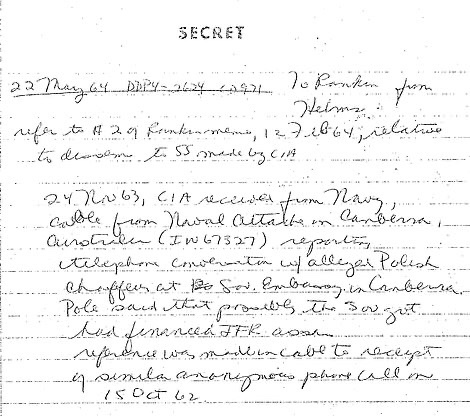 SECRET
22 May 64 DDP4-2624 CD971 To Rankin from
Helms:
refer to A 2 of Rankin memo, 12 Feb 64, relative
to dissem to SS made by CIA
24 Nov 63, CIA received from Navy,
cable from Naval Attache in Canberra,
Australia (IN67327) reporting
telephone conversation w/ alleged Polish
chauffeur at Sov. Embassy in Canberra
Pole said that possibly the Sov govt
had financed JFK assn
reference was made in cable to receipt
of similar anonymous phone call on
15 Oct 62